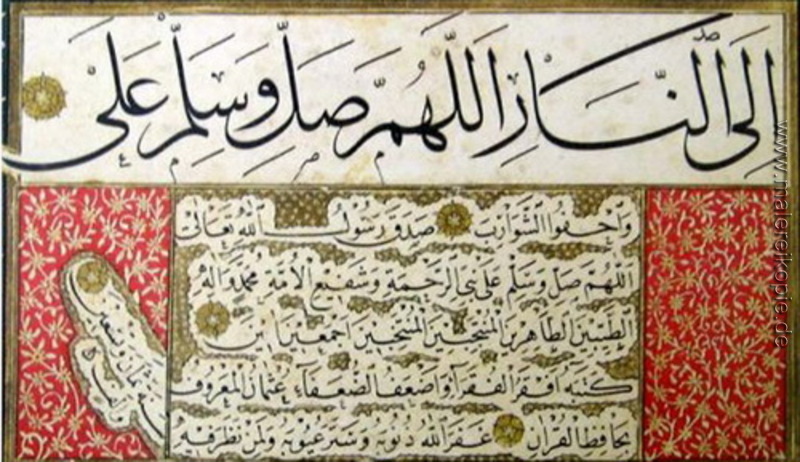 اِلَى النَّارِ اَللّٰهُمَّ صَلِّ وَسَلِّمْ عَلٰى
وَاحفوا الشوارب صدق رسول الله تعالى
اللهم صل وسلم على نبي الرحمة وشفيع الأمة محمد واله
الطيبين الطاهرين اجمعين
كتبه افقر الفقراء واضعف الضعفاء عثمان المعروف
بحافظ القران غفر الله ذنوبه وستر عيوبه ولمن نظر فيه
ثمان وتسعين
www.malereikopie.de